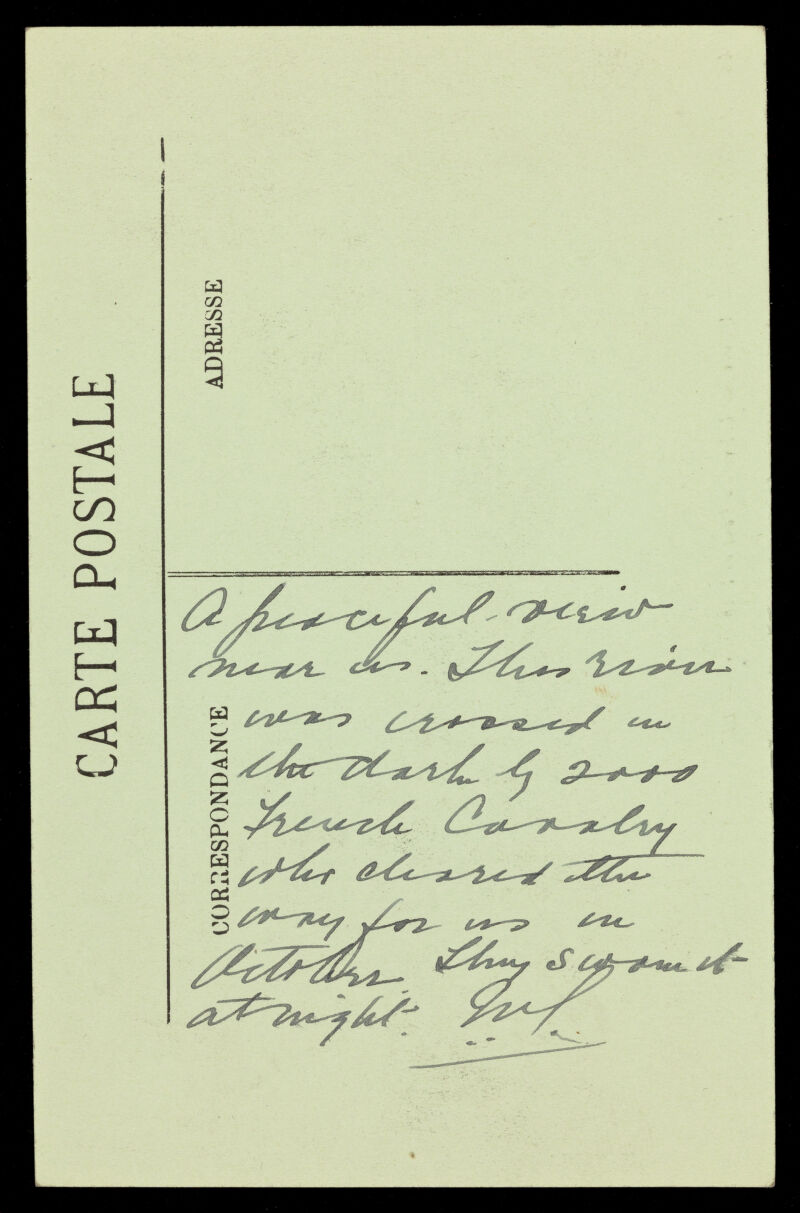 CARTE POSTALE
ADRESSE
CORRESPONDANCE
A peaceful view
near us. This river
was crossed in
the dark by 2000
French Cavalry
who cleared the
way for us in
October. They swam it
at night.